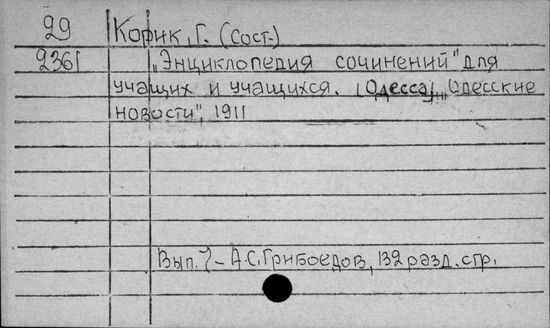 29 Корик, Г. (Сост.)
2361 „Энциклопедия сочинений" для
учащих и учащихся. [Одесса], „Одесские
новости", 1911
Вып. 7 - А.С. Грибоедов, 132 разд. стр.